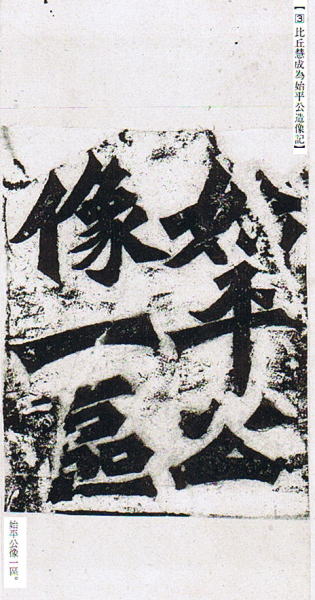 【③比丘慧成為始平公造像記】
始平公
像一區
始平公像一區。